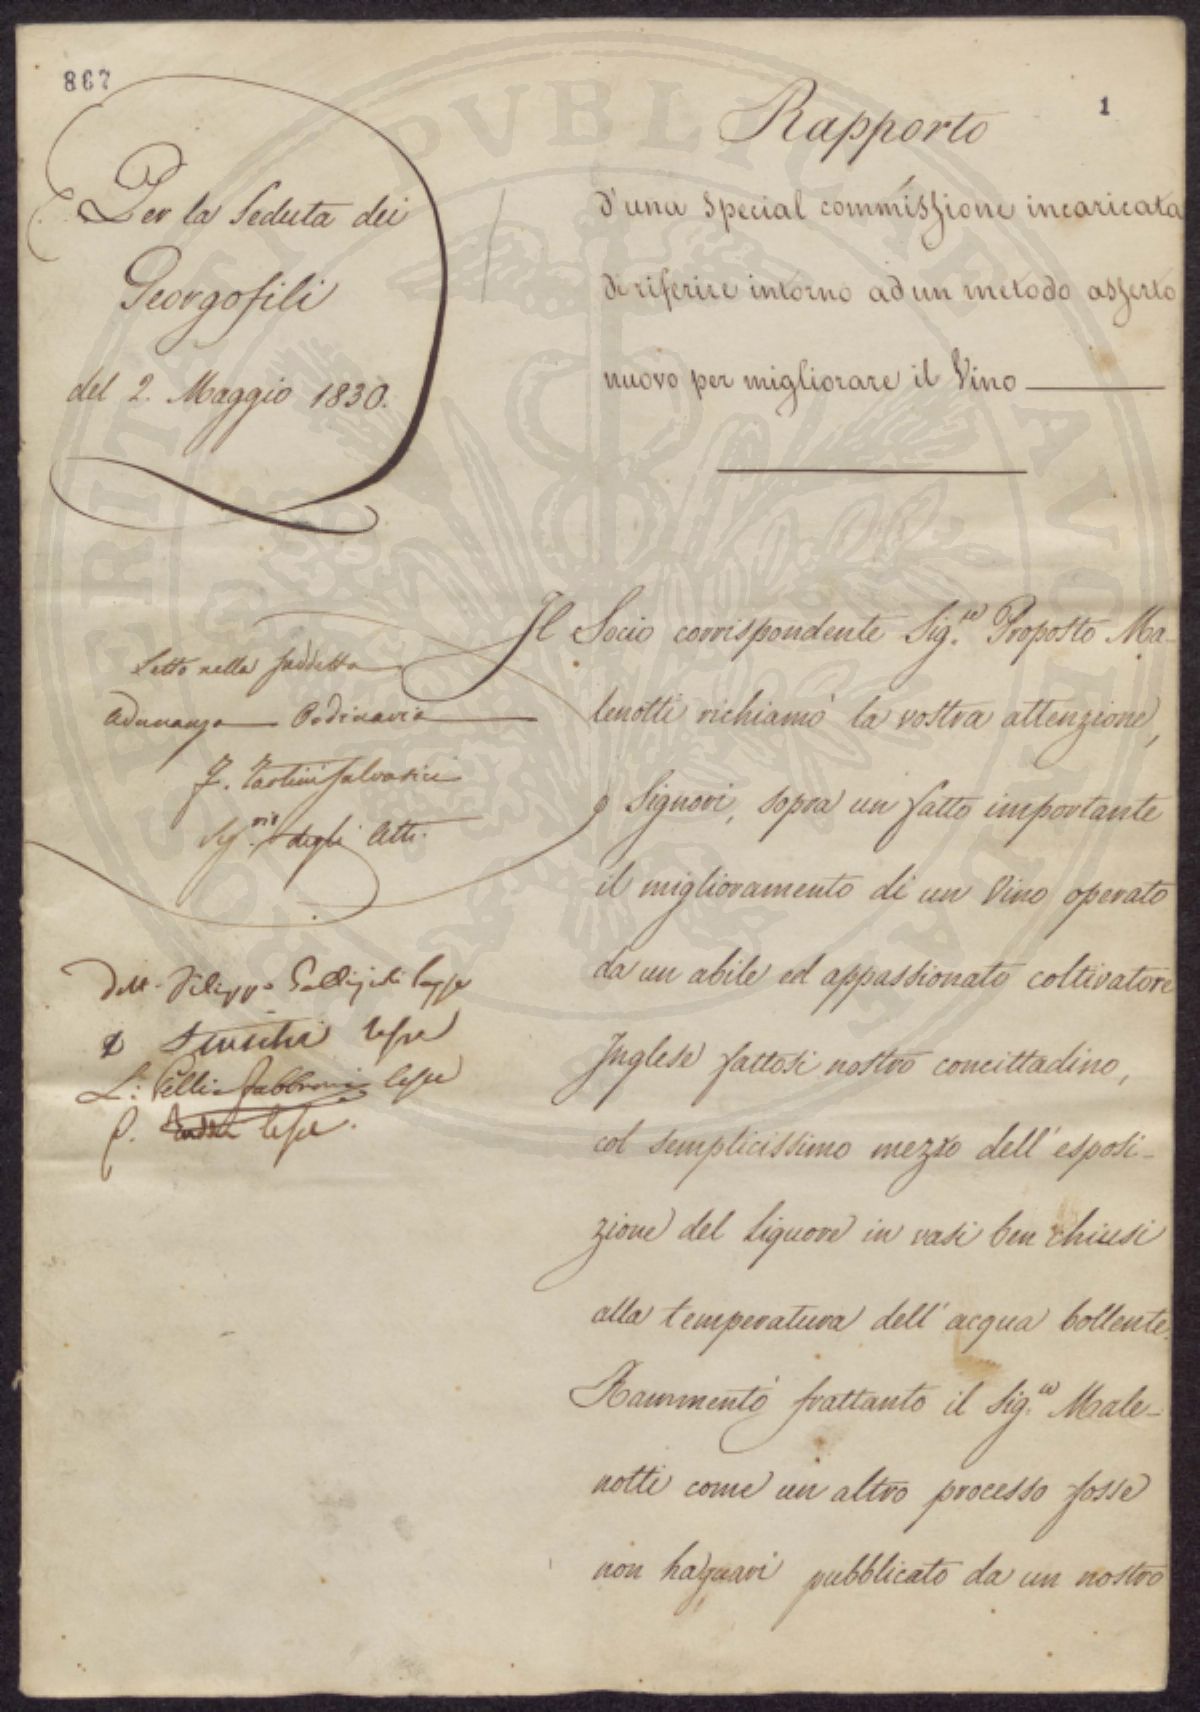 867
1
Per la Seduta dei
Georgofili
del 2. Maggio 1830.
Rapporto
d'una special commissione incaricata
di riferire intorno ad un metodo asserto
nuovo per migliorare il Vino
Letto nella suddetta
Adunanza Ordinaria
F. Tartini Salvatici
Seg.rio degli Atti.
Dott. Filippo Gallizioli lesse
lesse
L. Pelli-Fabbroni lesse
P. lesse.
Il Socio corrispondente Sig.re Proposto Ma-
lenotti richiamò la vostra attenzione,
o Signori, sopra un fatto importante
il miglioramento di un Vino operato
da un abile ed appassionato coltivatore
Inglese fattosi nostro concittadino,
col semplicissimo mezzo dell'esposi-
zione del liquore in vasi ben chiusi
alla temperatura dell'acqua bollente.
Rammentò frattanto il Sig.re Male-
notti come un altro processo fosse
non ha guari pubblicato da un nostro